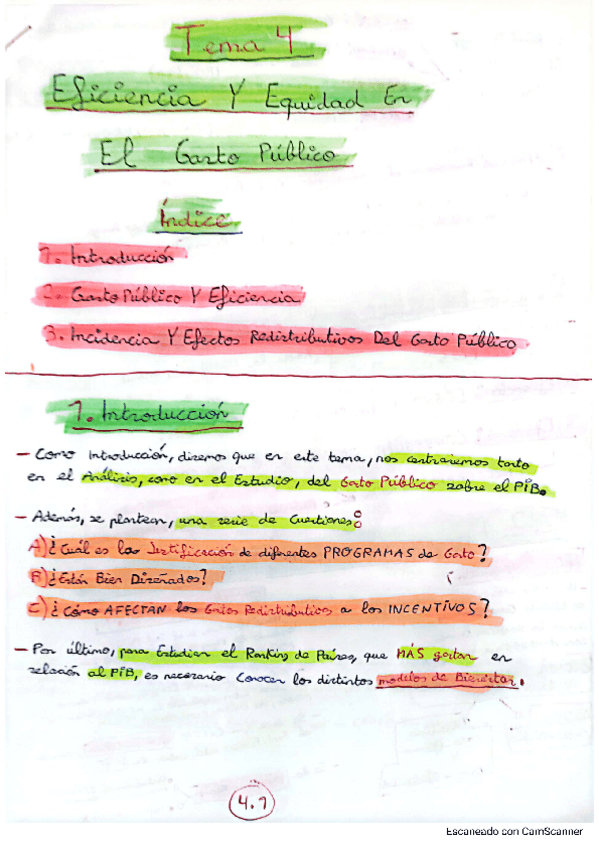 Tema 4
Eficiencia Y Equidad En
El Gasto Público
Índice
1. Introducción
2. Gasto Público Y Eficiencia
3. Incidencia Y Efectos Redistributivos Del Gasto Público
1. Introducción
- Como Introducción, diremos que en este tema, nos centraremos tanto
en el Análisis, como en el Estudio, del Gasto Público sobre el PIB.
- Además, se plantean, una serie de Cuestiones:
A) ¿Cuál es la Justificación de diferentes PROGRAMAS de Gasto?
B) ¿Están Bien Diseñados?
C) ¿Cómo AFECTAN los Gastos Redistributivos a los INCENTIVOS?
- Por último, para Estudiar el Ranking de Países, que MÁS gastan en
relación al PIB, es necesario Conocer los distintos modelos de Bienestar.
4.1
Escaneado con CamScanner